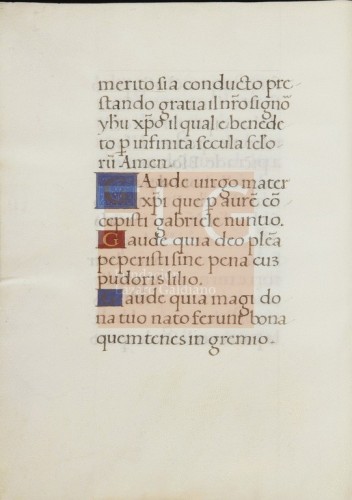 merito sia conducto pre
stando gratia il nr̃o signõ
yhu xp̃o il qual e benede
to p̱ infinita secula seƚo
rũ Amen.
GAude uirgo mater
xp̃i que p̱ aurẽ cõ
cepisti gabriele nuntio.
Gaude quia deo plẽa
peperisti sine pena cuʒ
pudoris lilio.
Gaude quia magi do
na tuo nato ferunt bona
quem tenes in gremio.
FLG
Lázaro Galdiano